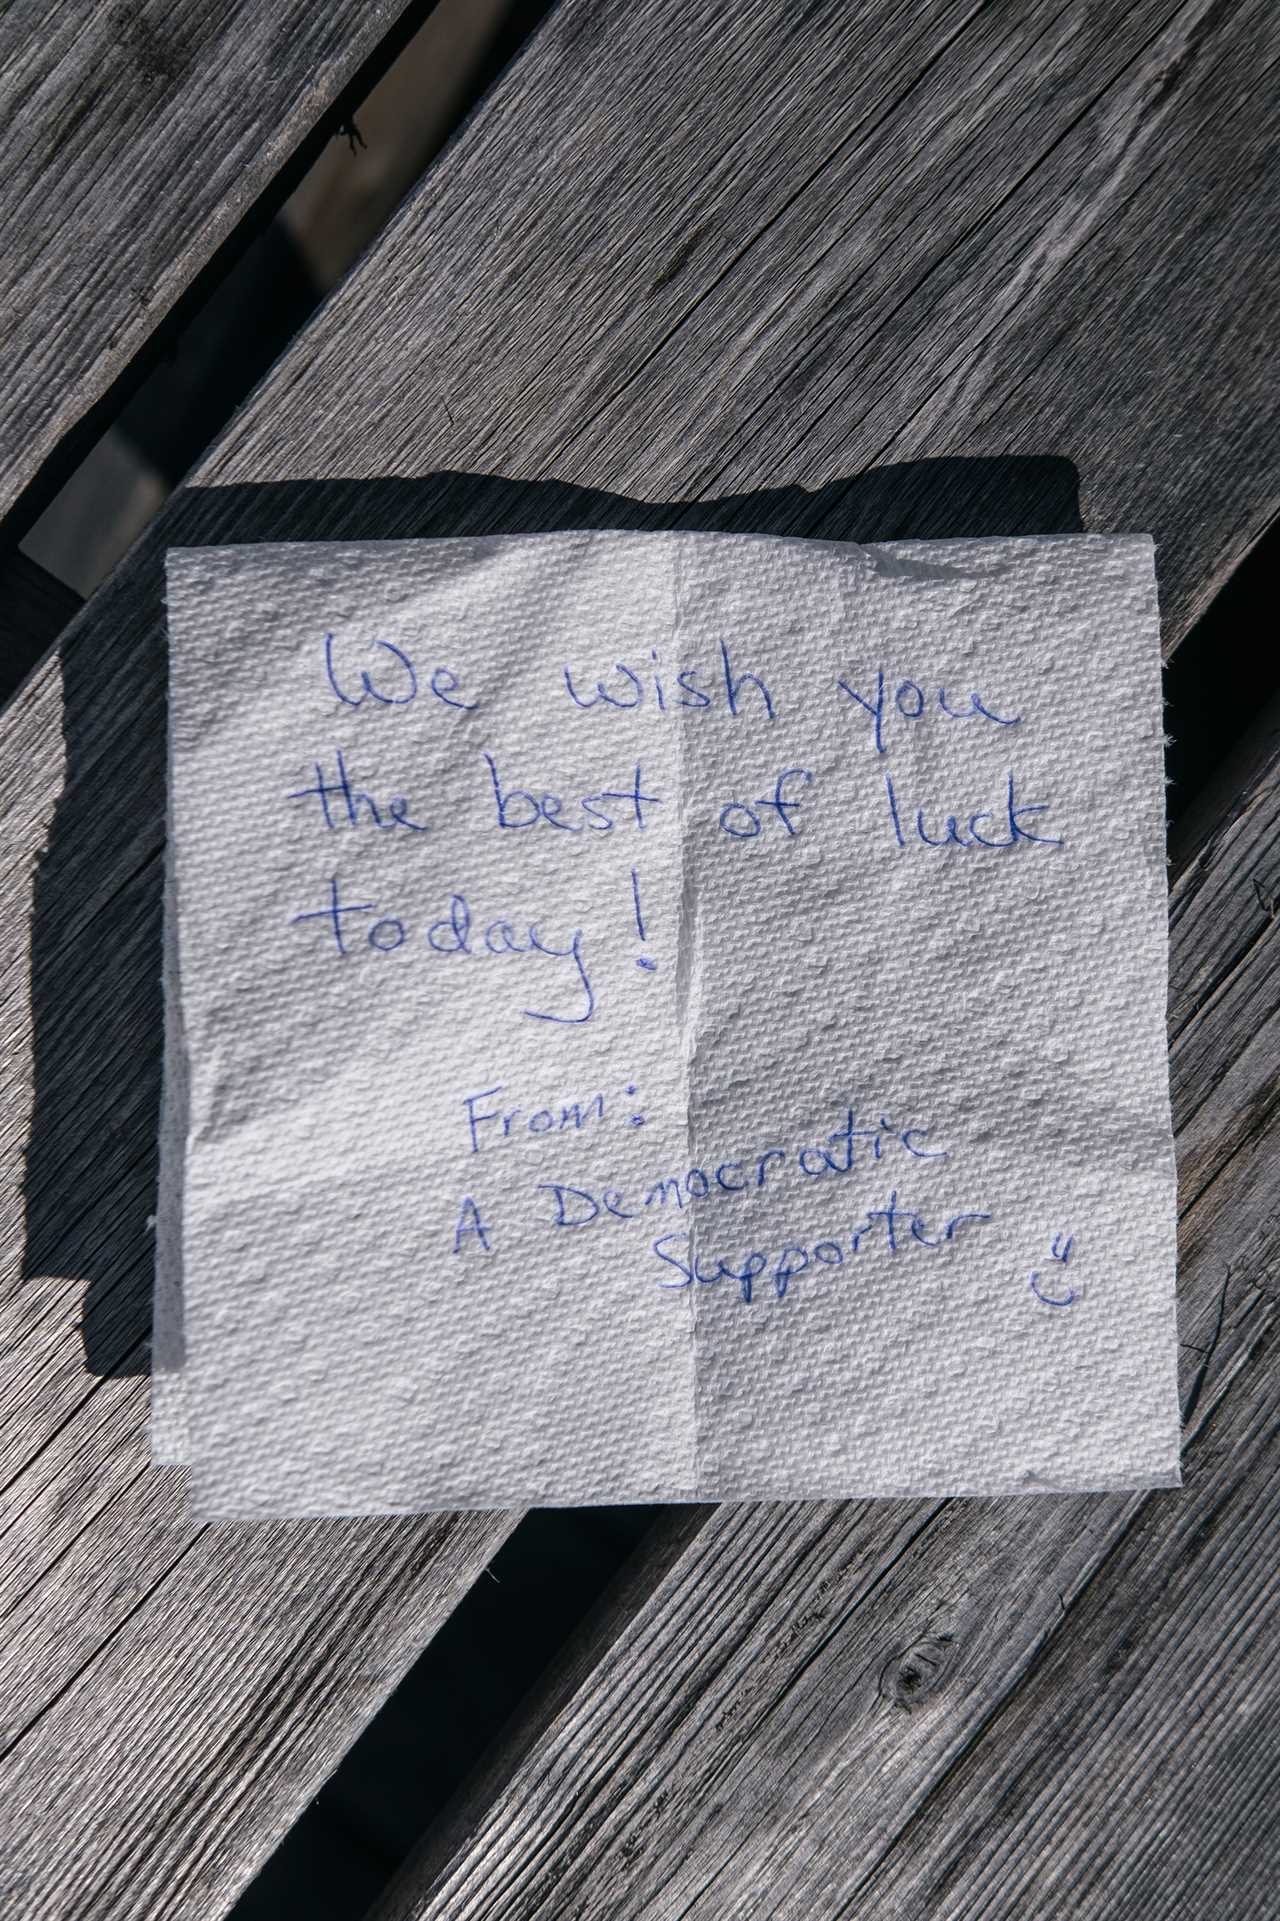 We wish you
the best of luck
today!
From:
A Democratic
Supporter